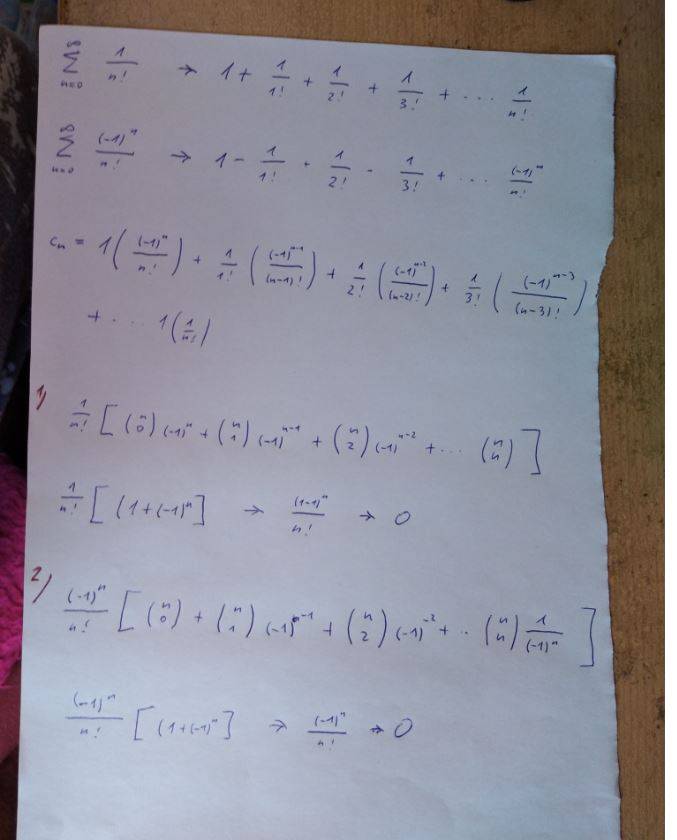 ∑_{n=0}^{∞} 1/n! → 1 + 1/1! + 1/2! + 1/3! + ... 1/n!
∑_{n=0}^{∞} (-1)^n/n! → 1 - 1/1! + 1/2! - 1/3! + ... (-1)^n/n!
c_n = 1((-1)^n/n!) + 1/1!((-1)^{n-1}/(n-1)!) + 1/2!((-1)^{n-2}/(n-2)!) + 1/3!((-1)^{n-3}/(n-3)!)
+ ... 1(1/n!)
1) 1/n! [(n 0)(-1)^n + (n 1)(-1)^{n-1} + (n 2)(-1)^{n-2} + ... (n n)]
1/n! [(1+(-1)^n] → (1-1)^n/n! → 0
2) (-1)^n/n! [(n 0) + (n 1)(-1)^{n-1} + (n 2)(-1)^{-2} + .. (n n) 1/(-1)^n]
(-1)^n/n! [(1+(-1)^n] → (-1)^n/n! → 0